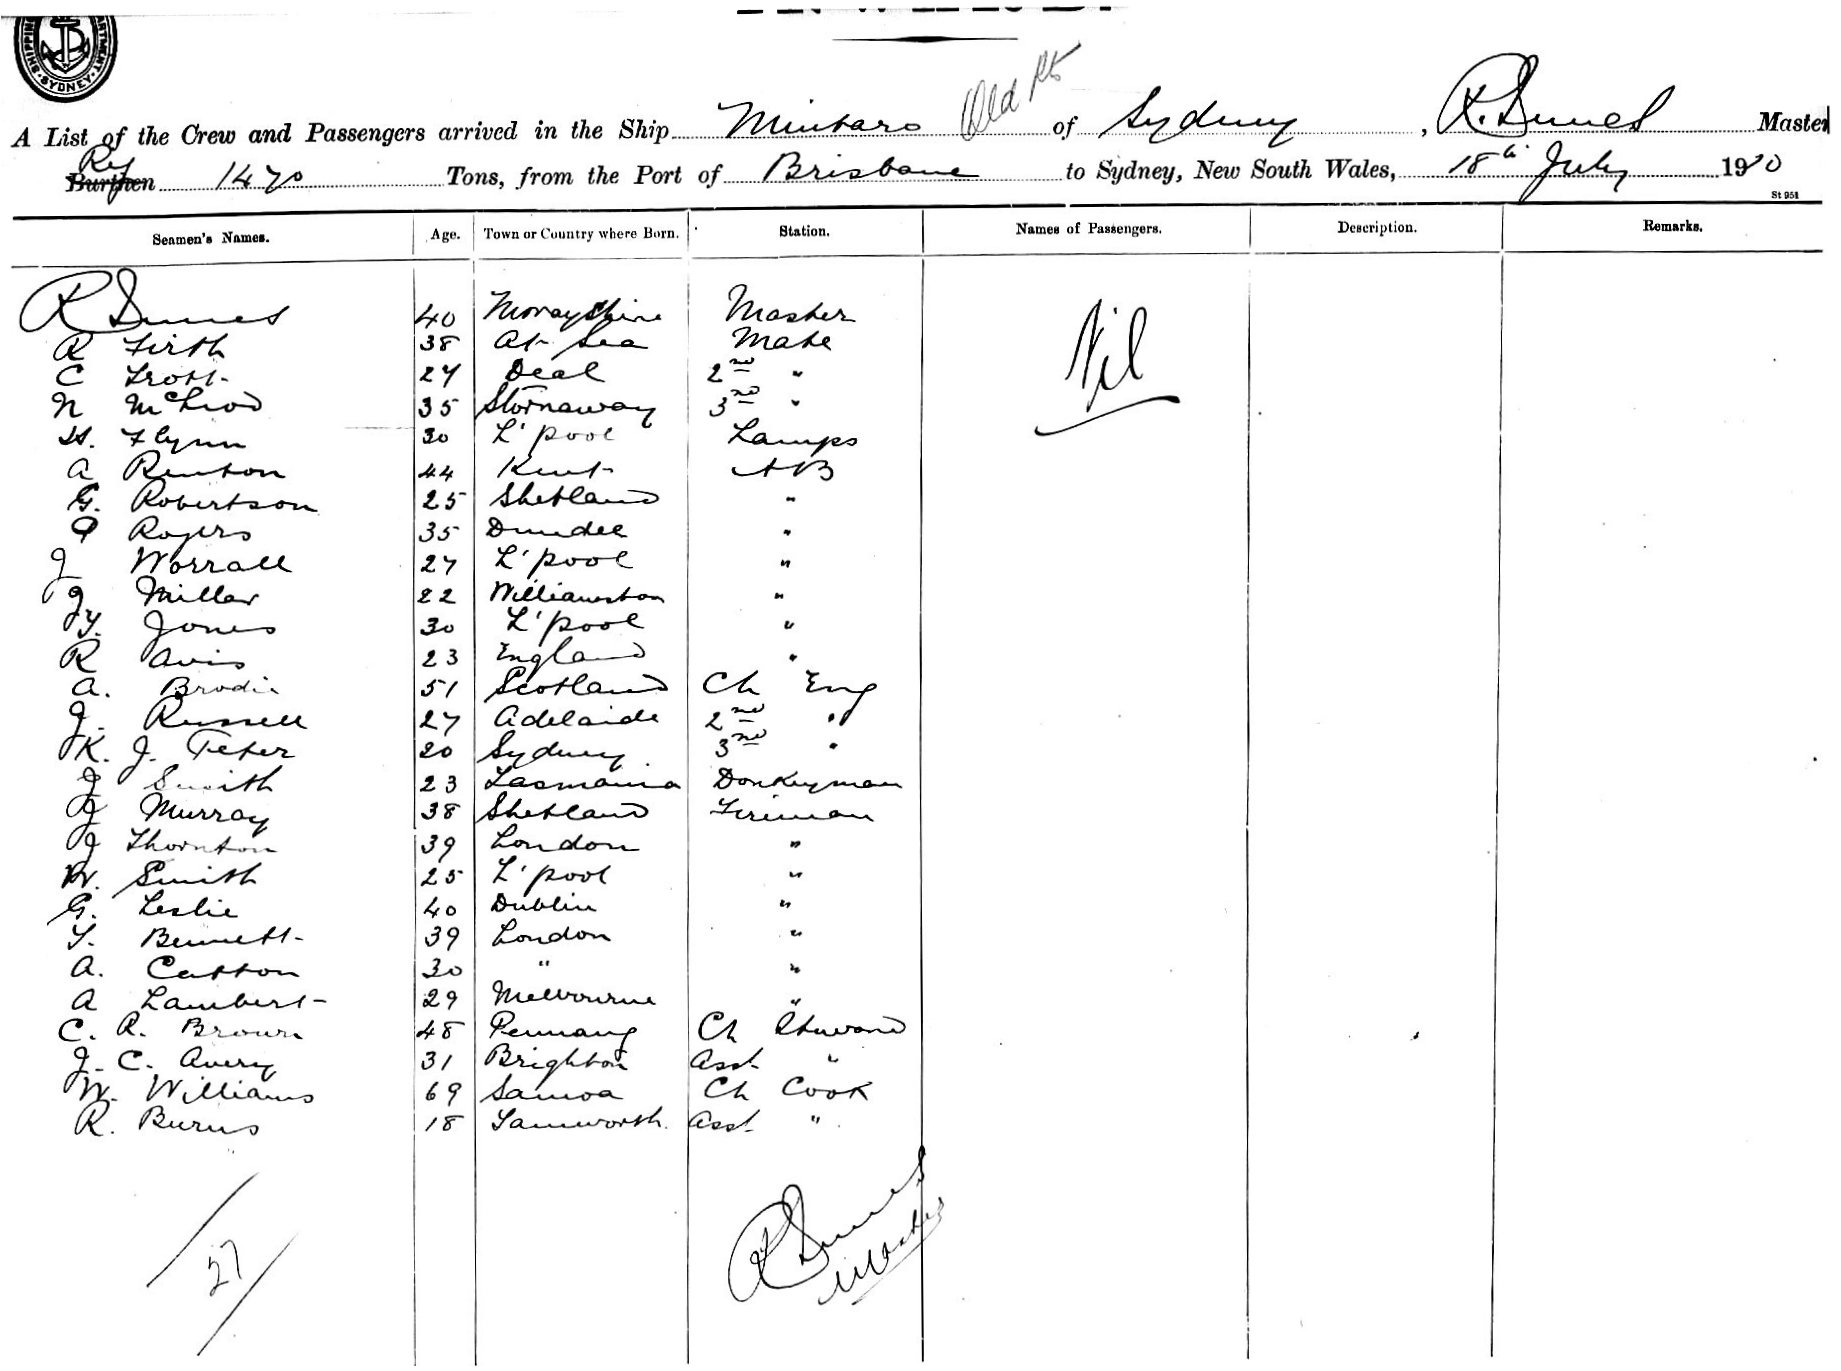 SHIPPING DEPARTMENT. SYDNEY.
Old
A List of the Crew and Passengers arrived in the Ship Mintaro of Sydney, R. Innes Master
Reg Burthen 1470 Tons, from the Port of Brisbane to Sydney, New South Wales, 18th July 1920
St 951
Seamen's Names. Age. Town or Country where Born. Station. Names of Passengers. Description. Remarks.
R Innes 40 Morayshire Master
Nil
R Firth 38 At Sea Mate
C Trott 27 Deal 2nd "
N McLeod 35 Stornaway 3rd "
H. Flynn 30 L'pool Lamps
A Renton 44 Kent AB
G. Robertson 25 Shetland "
P Rogers 35 Dundee "
J Worrall 27 L'pool "
J Miller 22 Williamston "
T. Jones 30 L'pool "
R Avis 23 England "
A. Brodie 51 Scotland Ch Eng
J. Russell 27 Adelaide 2nd "
K. J. Feter 20 Sydney 3rd "
J Smith 23 Tasmania Donkeyman
J Murray 38 Shetland Fireman
J Thornton 39 London "
W. Smith 25 L'pool "
G. Leslie 40 Dublin "
T. Bennett 39 London "
A. Catton 30 " "
A Lambert 29 Melbourne "
C. R. Brown 48 Pennang Ch Steward
J. C. Avery 31 Brighton Asst "
W. Williams 69 Samoa Ch Cook
R. Burns 18 Tamworth. Asst "
27
R Innes
Master